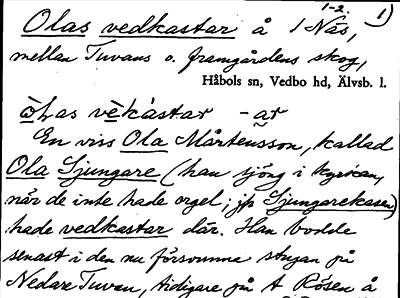 1-2. 1)
Olas vedkastar å 1 Näs,
mellan Tuvans o. framgårdens skog,
Håbols sn, Vedbo hd, Älvsb. l.
òLas vèkàstar -ar
En viss Ola Mårtensson, kallad
Ola Sjungare (han sjöng i kyrkan,
när de inte hade orgel; jfr Sjungarekasen)
hade vedkastar där. Han bodde
senast i den nu försvunna stugan på
Nedare Tuvan, tidigare på A Rösen å